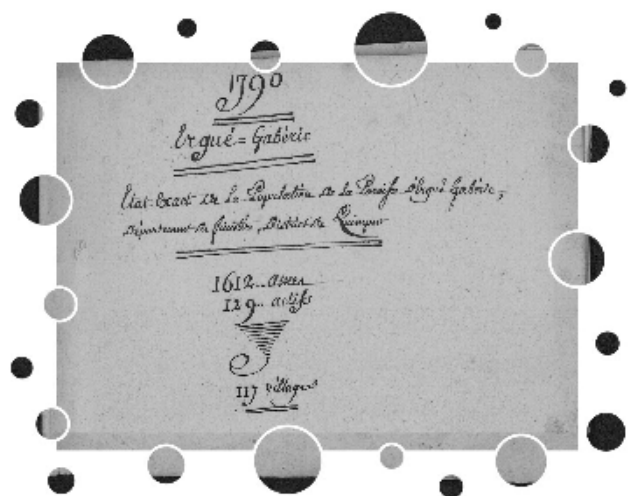 1790
Ergué=Gabéric
Etat Exact de la Population de la Paroisse d'Ergué Gabéric,
département du finistère, District de Quimper
1612.. ames
129.. actifs
117 villages